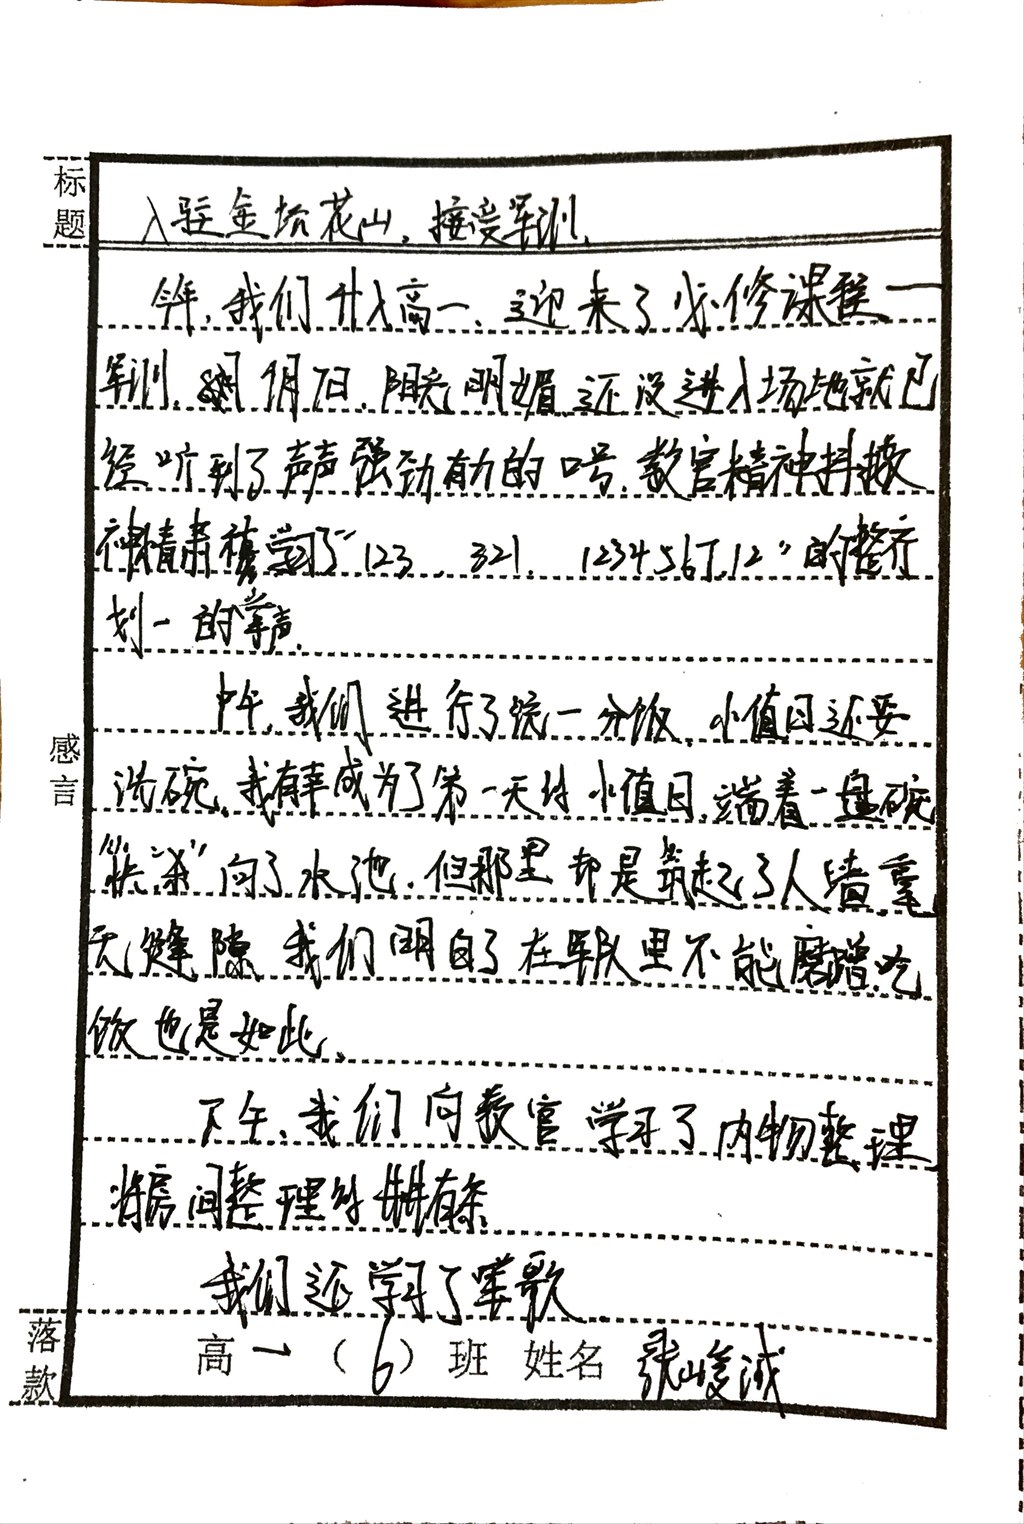 标题
入驻金坮花山,接受军训.
今年,我们升入高一、迎来了必修课程一
军训. 月 日,阳光明媚 还没进入场地就已
经听到了声声强劲有力的口号,教官精神抖擞
神情肃穆 学习了"123、321、1234567.12"的整齐
划一的掌声.
中午,我们进行了统一分饭,小值日还要
洗碗,我有幸成为了第一天的小值日,端着一盘碗
"快杀"向了水池.但那里却是筑起了人墙,毫
无缝隙 我们明白了在军队里不能磨蹭,吃
饭也是如此、
下午,我们向教官学习了内物整理
将房间整理的井井有条
我们还学习了军歌
感言
落款
高一(6)班 姓名 张峻诚